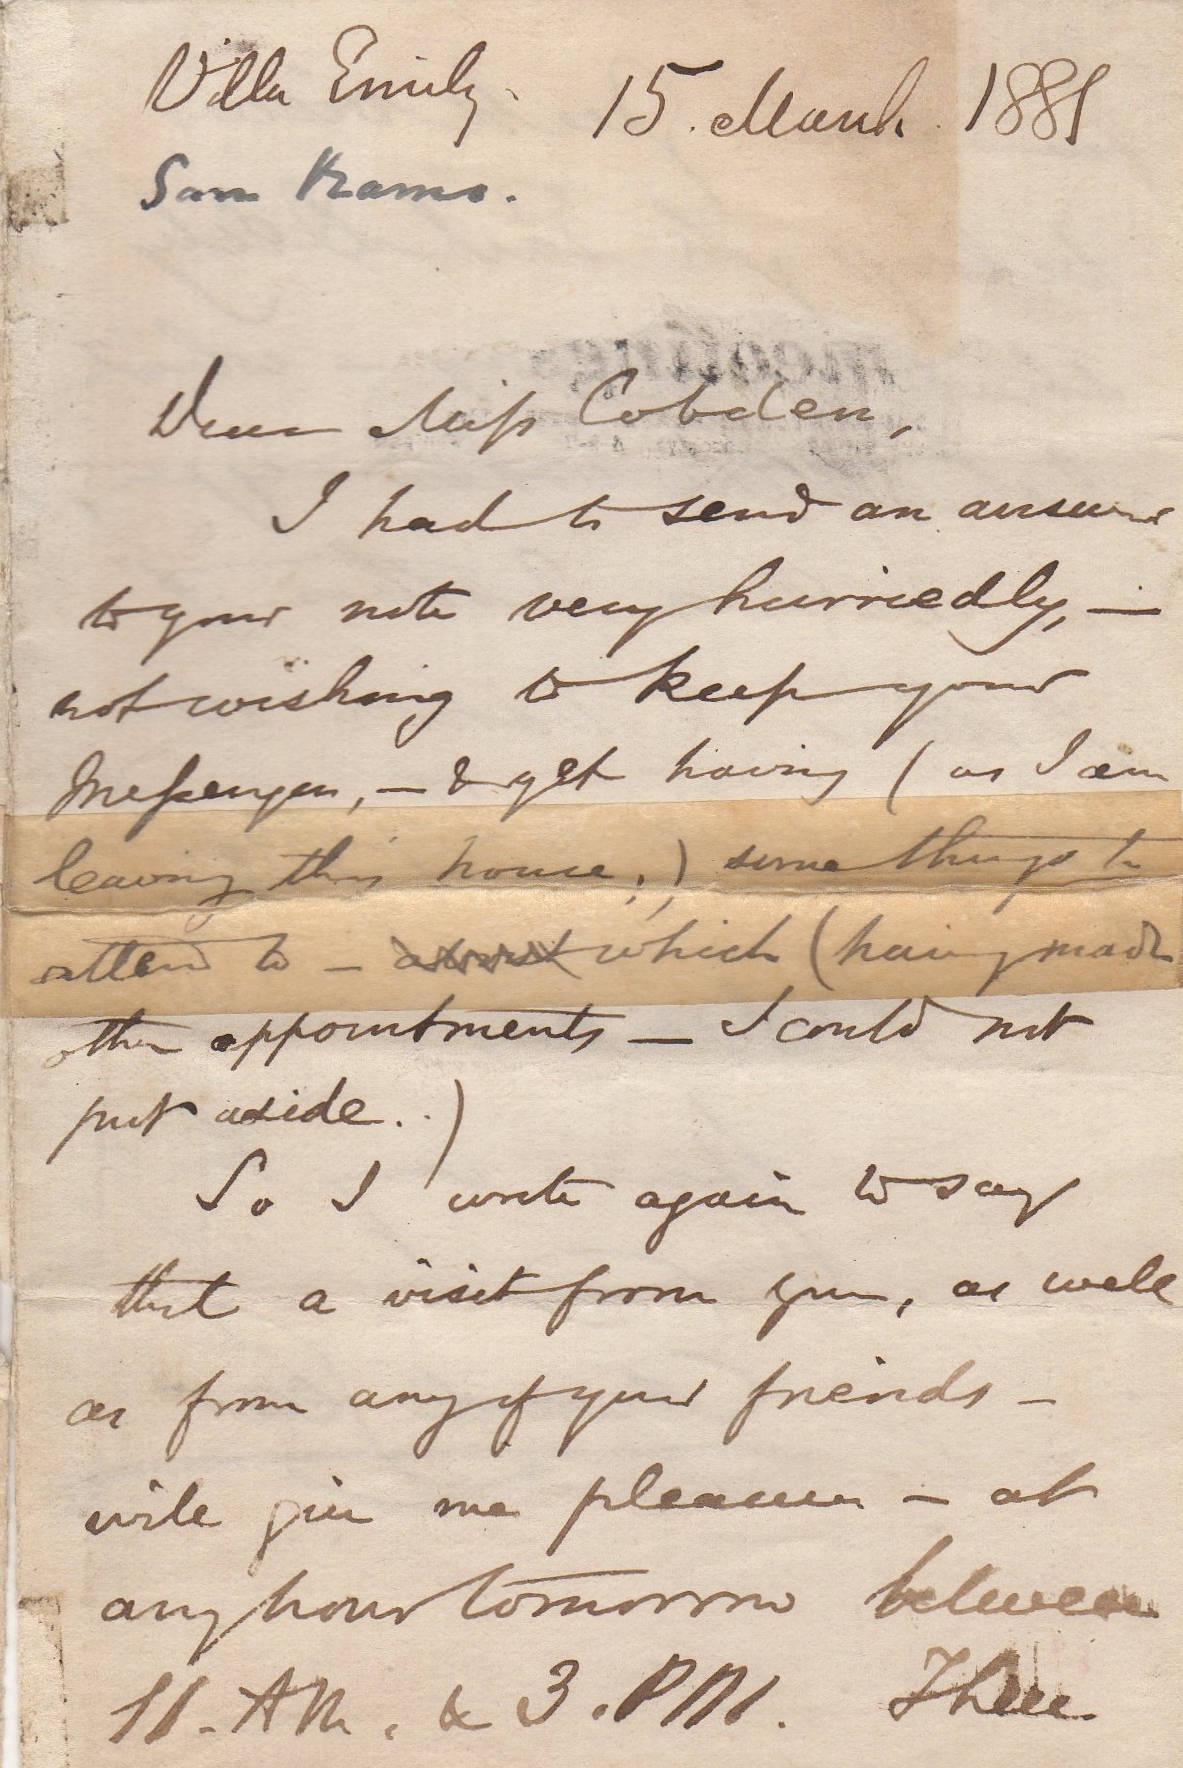 Villa Emily. 15. March. 1881
San Remo.
Dear Miss Cobden,
I had to send an answer
to your note very hurriedly, —
not wishing to keep your
Messenger, — & yet having (as I am
leaving this house,) some things to
attend to — which (having made
other appointments — I could not
put aside..)
So I write again to say
that a visit from you, as well
as from any of your friends —
will give me pleasure — at
any hour tomorrow between
11. AM. & 3. PM.